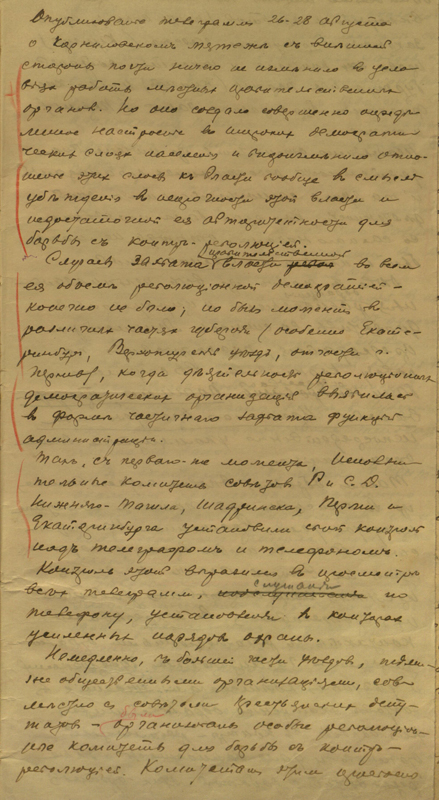 Опубликование телеграмм 26-28 августа
о Корниловском мятеже съ внешней
стороны почти ничего не изменило в усло
виях работы местных правительственных
органов. Но оно создало совершенно опреде
ленное настроение во широких демократи
ческих слоях населения и видоизменило отно
шение этих слоев къ власти вообще в смысле
убеждения в непрочности этой власти и
недостаточной ея авторитетности для
борьбы съ контр-революцией.
Случаев захвата правительственной власти во всем
ея объеме революционной демократией -
конечно не было, но был момент в
различных частях губернии (особенно Екате-
ринбург, Верхотурский уезд, отчасти г.
Пермь), когда деятельность революционных
демократических организаций вылилась
в форму частичного захвата функций
администрации.
Такъ, съ перваго-же момента, Исполни
тельные комитеты советов Р и С.Д.
Нижняго-Тагила, Шадринска, Перми и
Екатеринбурга установили свой контроль
надъ телеграфомъ и телефономъ.
Контроль этой выразился в просмотре
всех телеграмм, слушания по
телефону, установления в конторах
усиленных нарядов охраны.
Немедленно, въ большей части уездов, мест
ные общественными организациями, сов
местно с советами крестьянских депу-
татов - организованы особые революцион-
ные комитеты для борьбы съ контр-
революцией. Комитетам этим